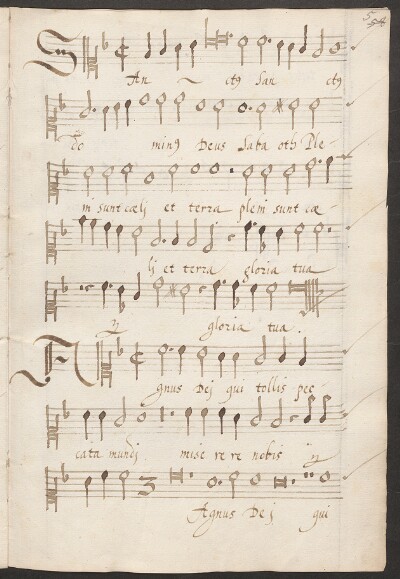 San ctus San ctus
do minus Deus Saba oth Ple
ni sunt cœli et terra pleni sunt cœ
li et terra gloria tua
ij gloria tua.
Agnus Dei qui tollis pec
cata mundi mise re re nobis ij
Agnus Dei qui